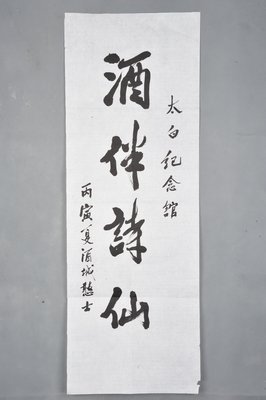 太白纪念馆
酒伴詩仙
丙寅夏酒城憨士